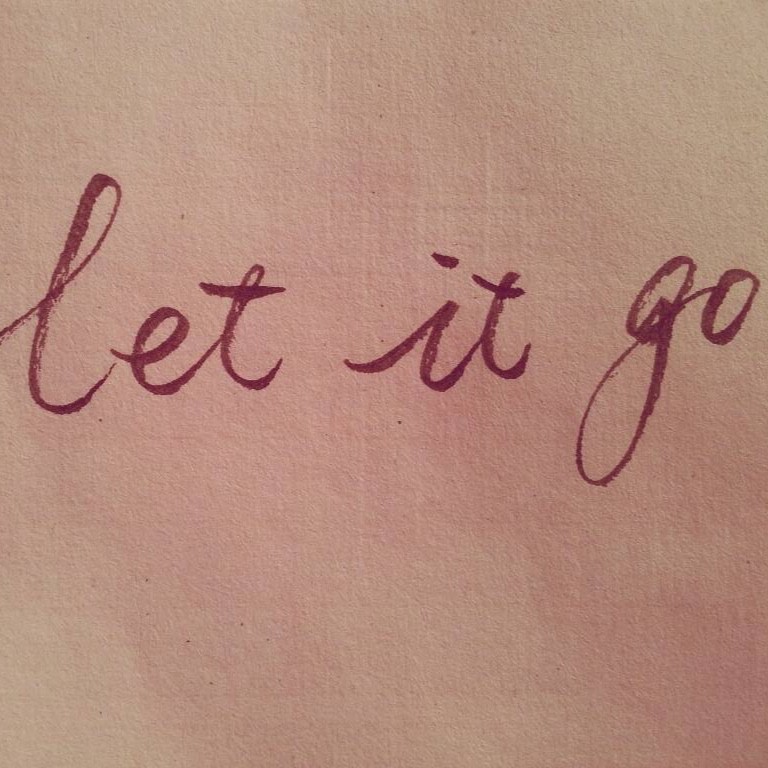 let it go